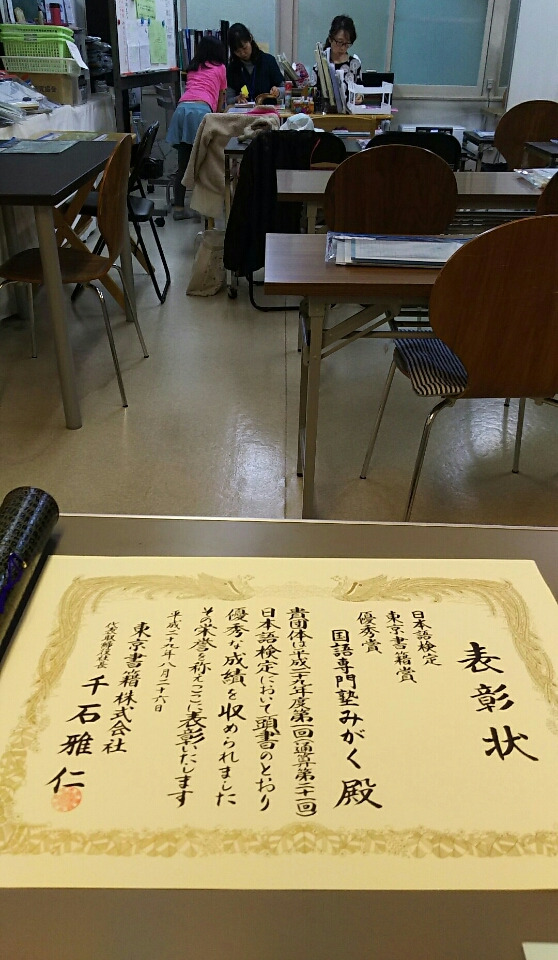 表彰状
日本語検定
東京書籍賞
優秀賞
国語専門塾みがく殿
貴団体は平成二十九年度第一回(通算第二十一回)
日本語検定において頭書のとおり
優秀な成績を収められました
その栄誉を称えここに表彰いたします
平成二十九年八月二十六日
東京書籍株式会社
代表取締役社長 千石雅仁